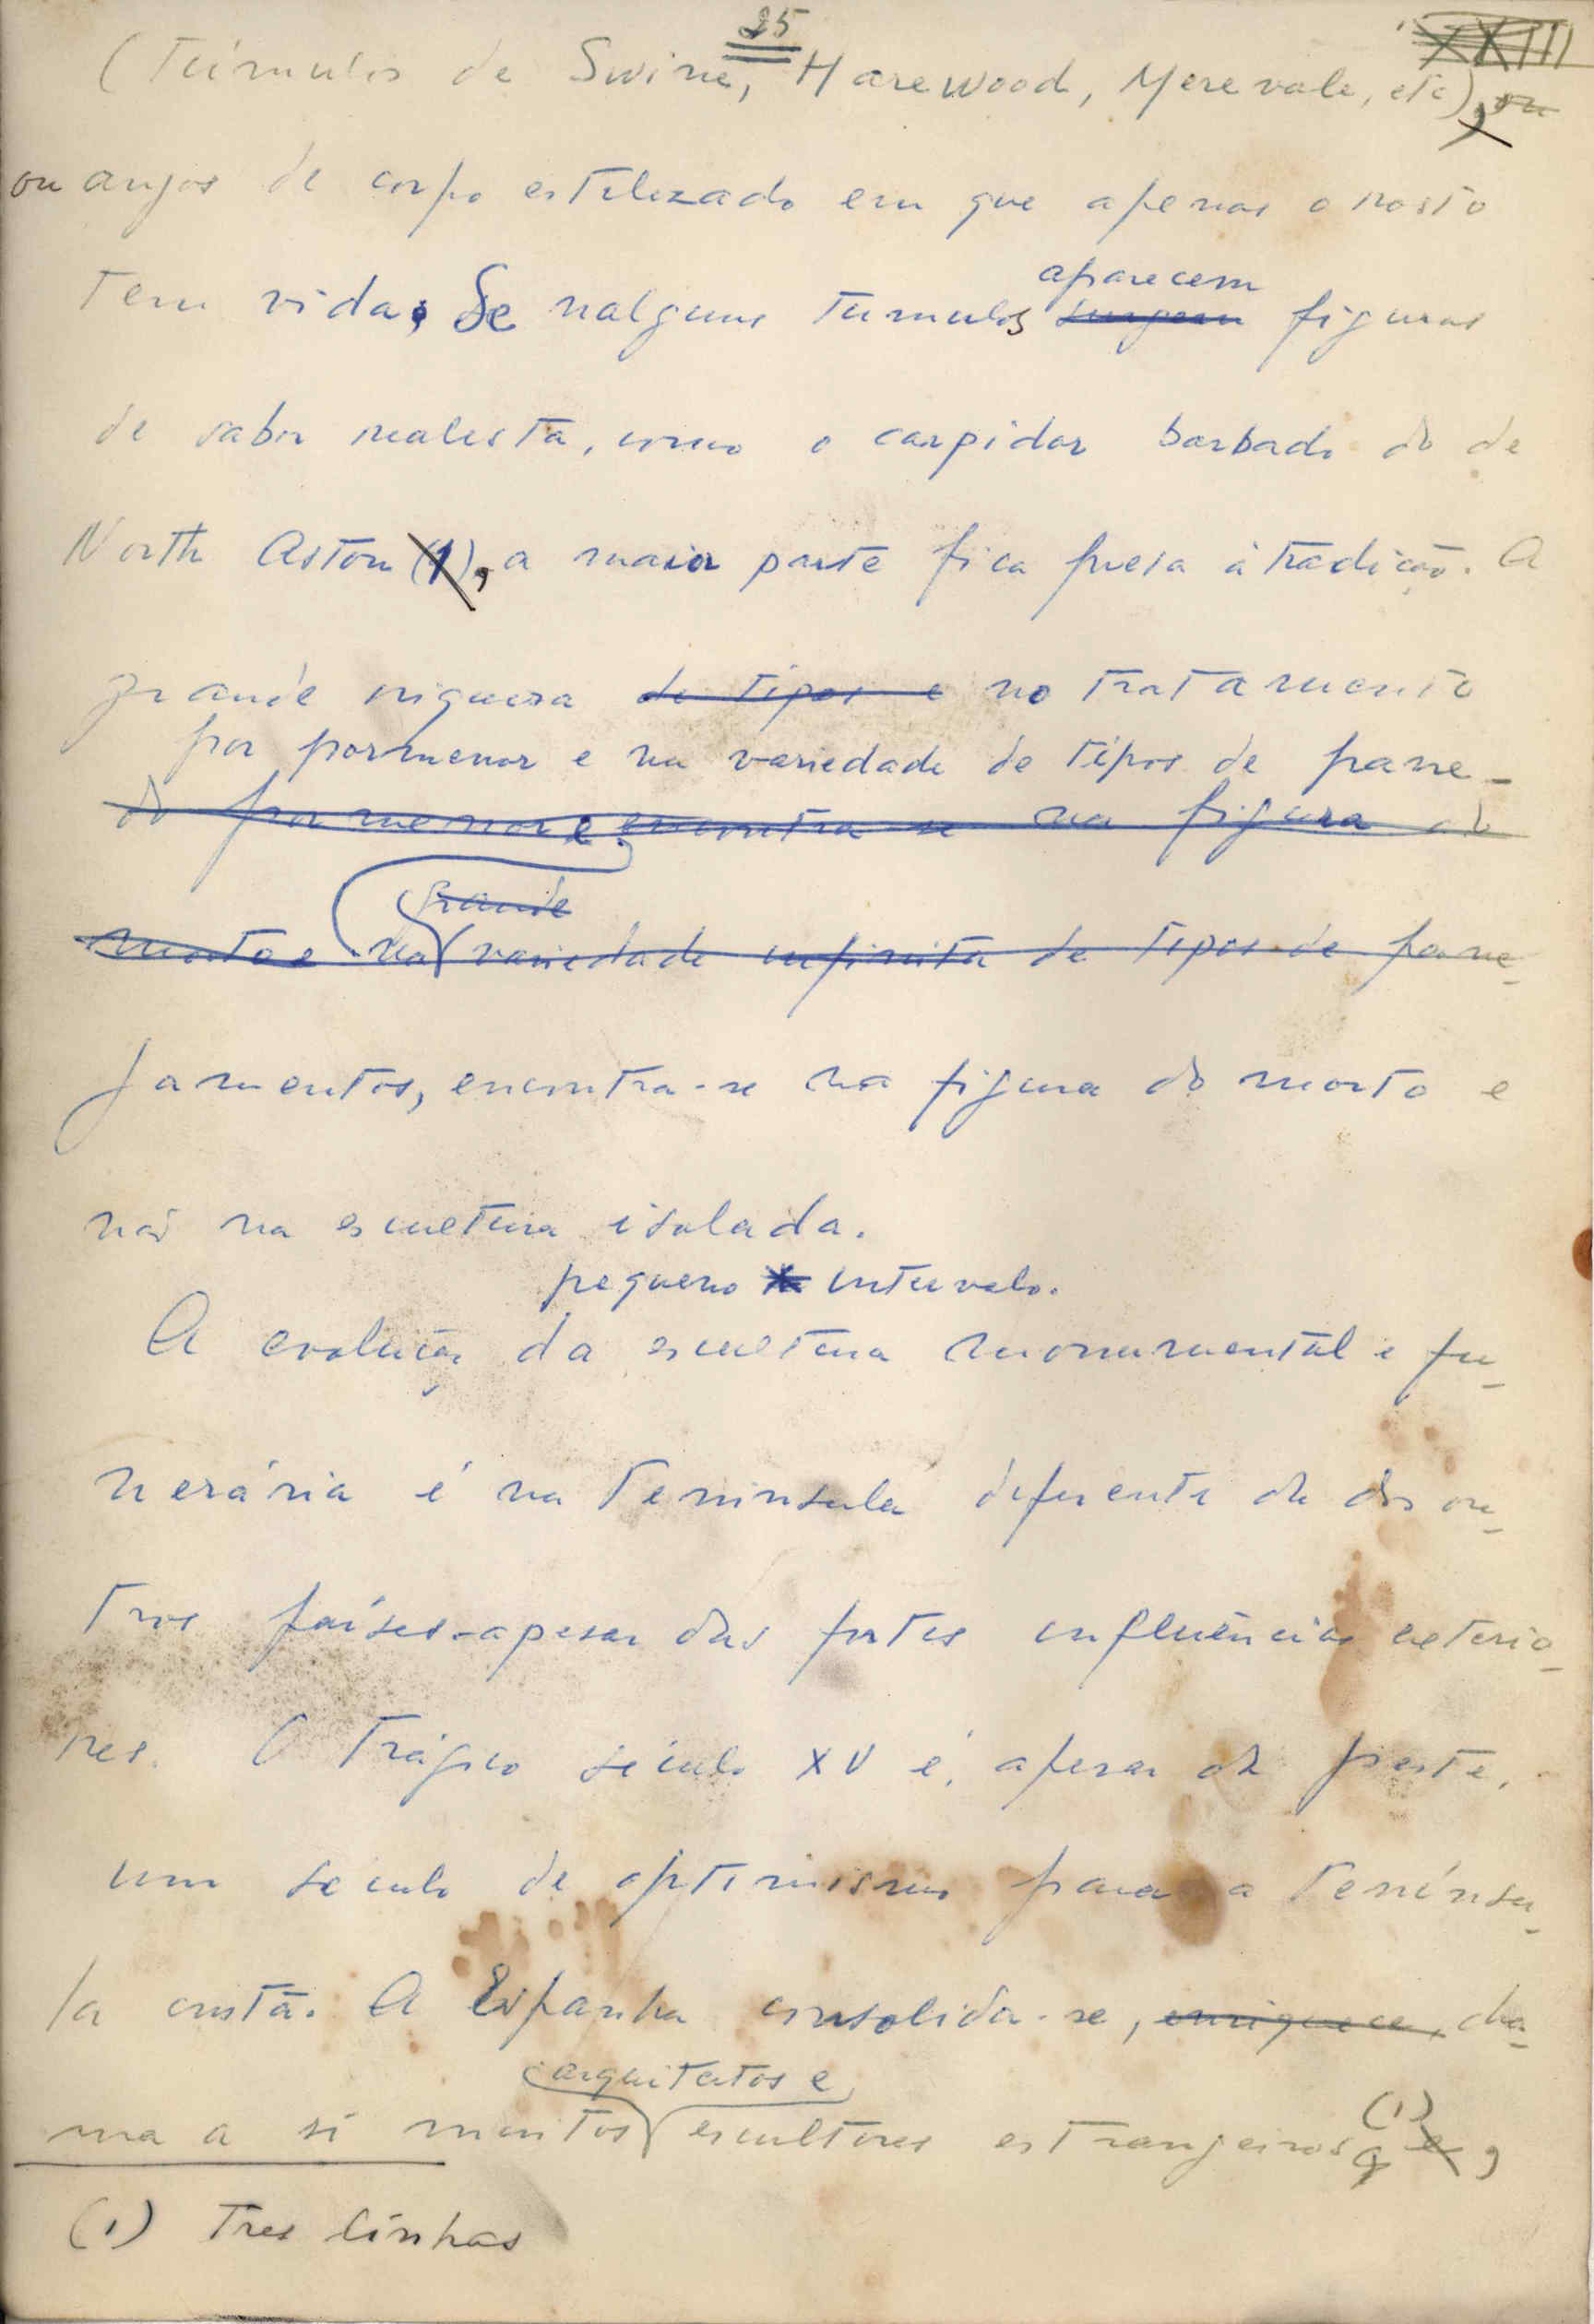 25
XXIII
(Túmulos de Swine, Harewood, Merevale, etc), ou
ou anjos de corpo estilizado em que apenas o rosto
tem vida. Se nalguns tumulos
aparecem
surgem figuras
de sabor realista, como o carpidor barbado do de
North Aston (1), a maior parte fica presa à tradição. A
grande riqueza de tipos e no tratamento
por pormenor e na variedade de tipos de pane-
do pormenor e encontra-se na figura do
grande
morto e na variedade infinita de tipos de pane-
jamentos, encontra-se na figura do morto e
não na escultura isolada.
pequeno intervalo.
A evolução da escultura monumental e fu-
nerária é na Peninsula diferente da dos ou-
tros países apesar das fortes influências exterio-
res. O trágico século XV é, apesar da peste,
um seculo de optimismo para a Penínsu-
la cristã. A Espanha consolida-se, enriquece, cha-
arquitectos e
ma a si muitos escultores estrangeiros (1) e,
(1) Tres linhas